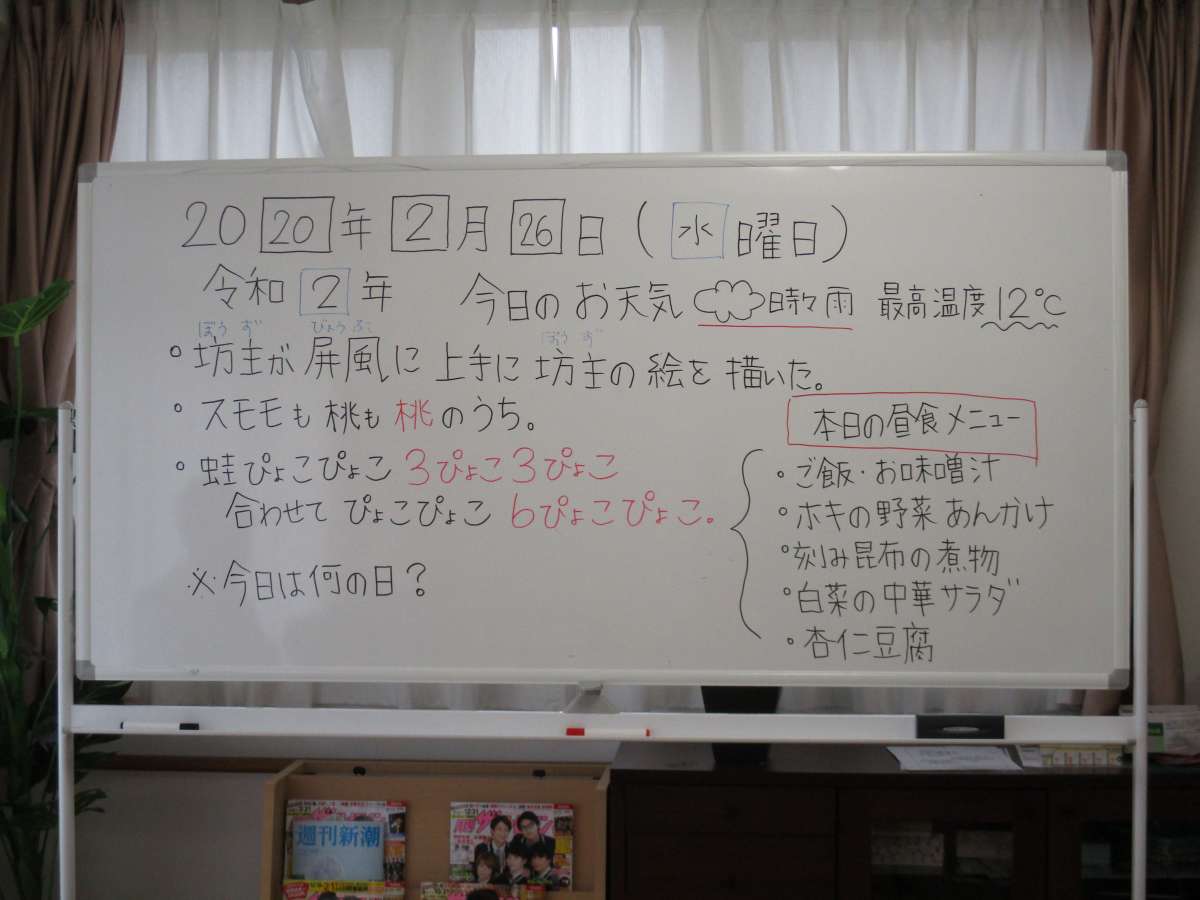 2020年2月26日(水曜日)
令和2年 今日のお天気 日時々雨 最高温度12℃
ぼうず びょうぶ ぼうず
坊主が屏風に上手に坊主の絵を描いた。
スモモも桃も桃のうち。
蛙ぴょこぴょこ3ぴょこ3ぴょこ
合わせてぴょこぴょこ6ぴょこぴょこ。
※今日は何の日?
本日の昼食メニュー
ご飯・お味噌汁
ホキの野菜あんかけ
刻み昆布の煮物
白菜の中華サラダ
杏仁豆腐
週刊新潮